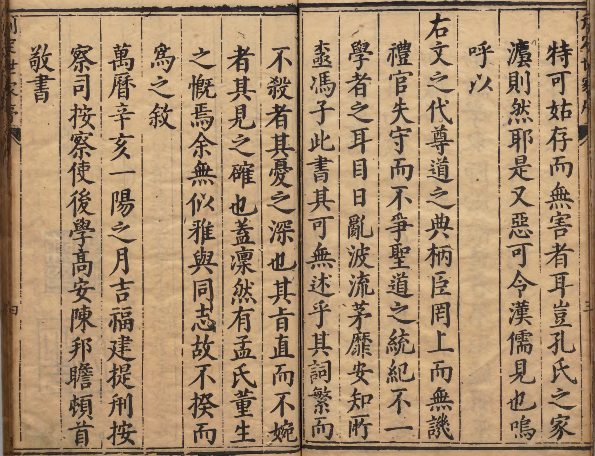 特可姑存而無害者耳豈孔氏之家
瀆則然耶是又惡可令漢儒見也嗚
呼以
右文之代尊道之典柄臣罔上而無譏
禮官失守而不爭聖道之統紀不一
學者之耳目日亂波流茅靡安知所
壼馮子此書其可無述乎其詞繁而
不殺者其憂之深也其旨直而不婉
者其見之確也蓋凛然有孟氏董生
之慨焉余無似雅與同志故不揆而
為之敘
萬曆辛亥一陽之月吉福建提刑按
察司按察使後學高安陳邦瞻頓首
敬書